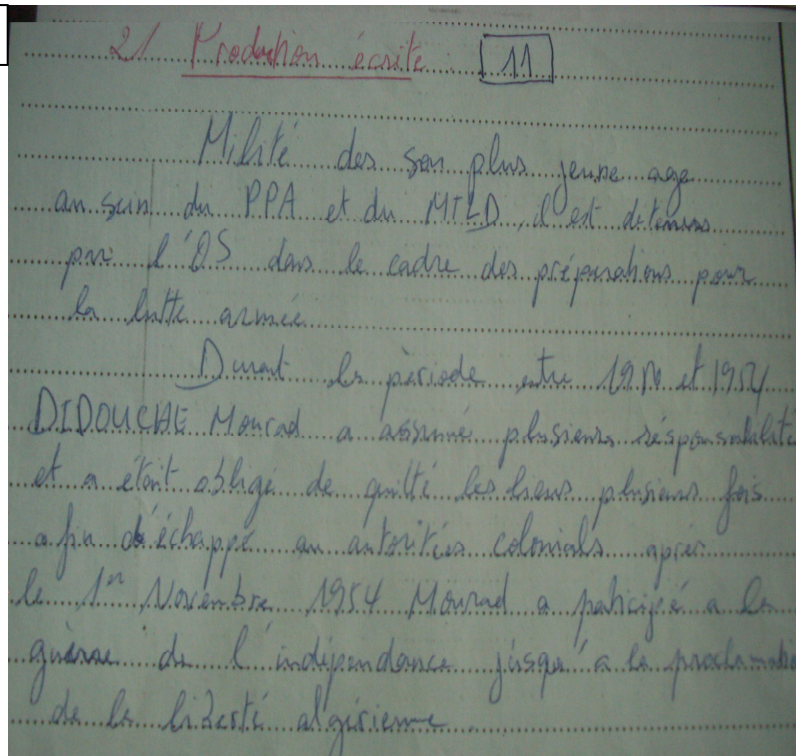 2/ Production écrite : 11
Milité des son plus jeune age
au sein du PPA et du MTLD, il est detenus
par l'OS dans le cadre des préparations pour
la lutte armée
Durant la périade entre 1950 et 1954
DIDOUCHE Mourad a assumé plusieurs résponsabalité
et a était obligé de quitté les lieus plusieurs fois
a fin d'échappé au autorités colonials après
le 1er Novembre 1954 Mourad a paticipé a la
guèrre de l'indépendance jusqu'a la proclamation
de la liberté algérienne